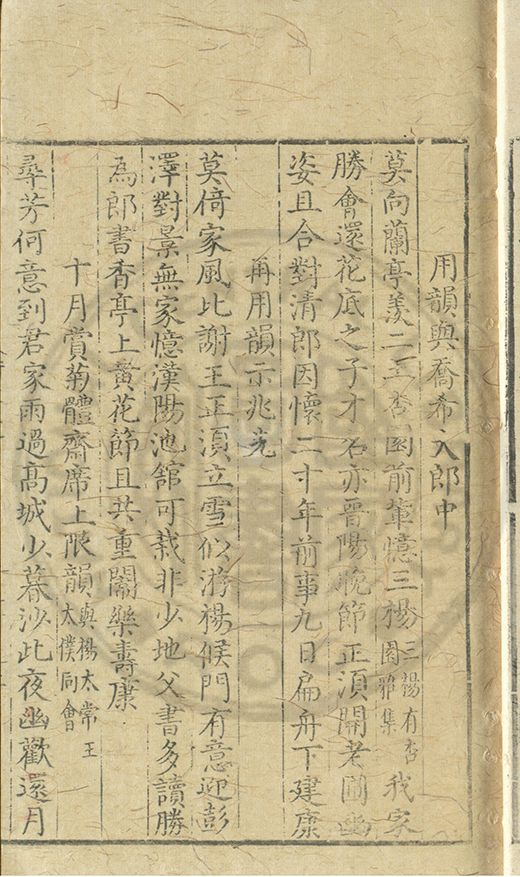 用韻與喬希大郎中
莫向蘭亭羨二王杏園前輩憶三楊三楊有杏園雅集我家
勝會還花底之子才名亦晉陽晚節正須開老圃幽
姿且合對清郎因懷二十年前事九日扁舟下建康
再用韻示兆先
莫倚家風比謝王正須立雪似游楊候門有意迎彭
澤對景無家憶漢陽池館可栽非少地父書多讀勝
為郎書香亭上黃花節且共重闈樂壽康
十月賞菊體齋席上限韻與楊太常王太僕同會
尋芳何意到君家雨過高城少暮沙此夜幽歡還月